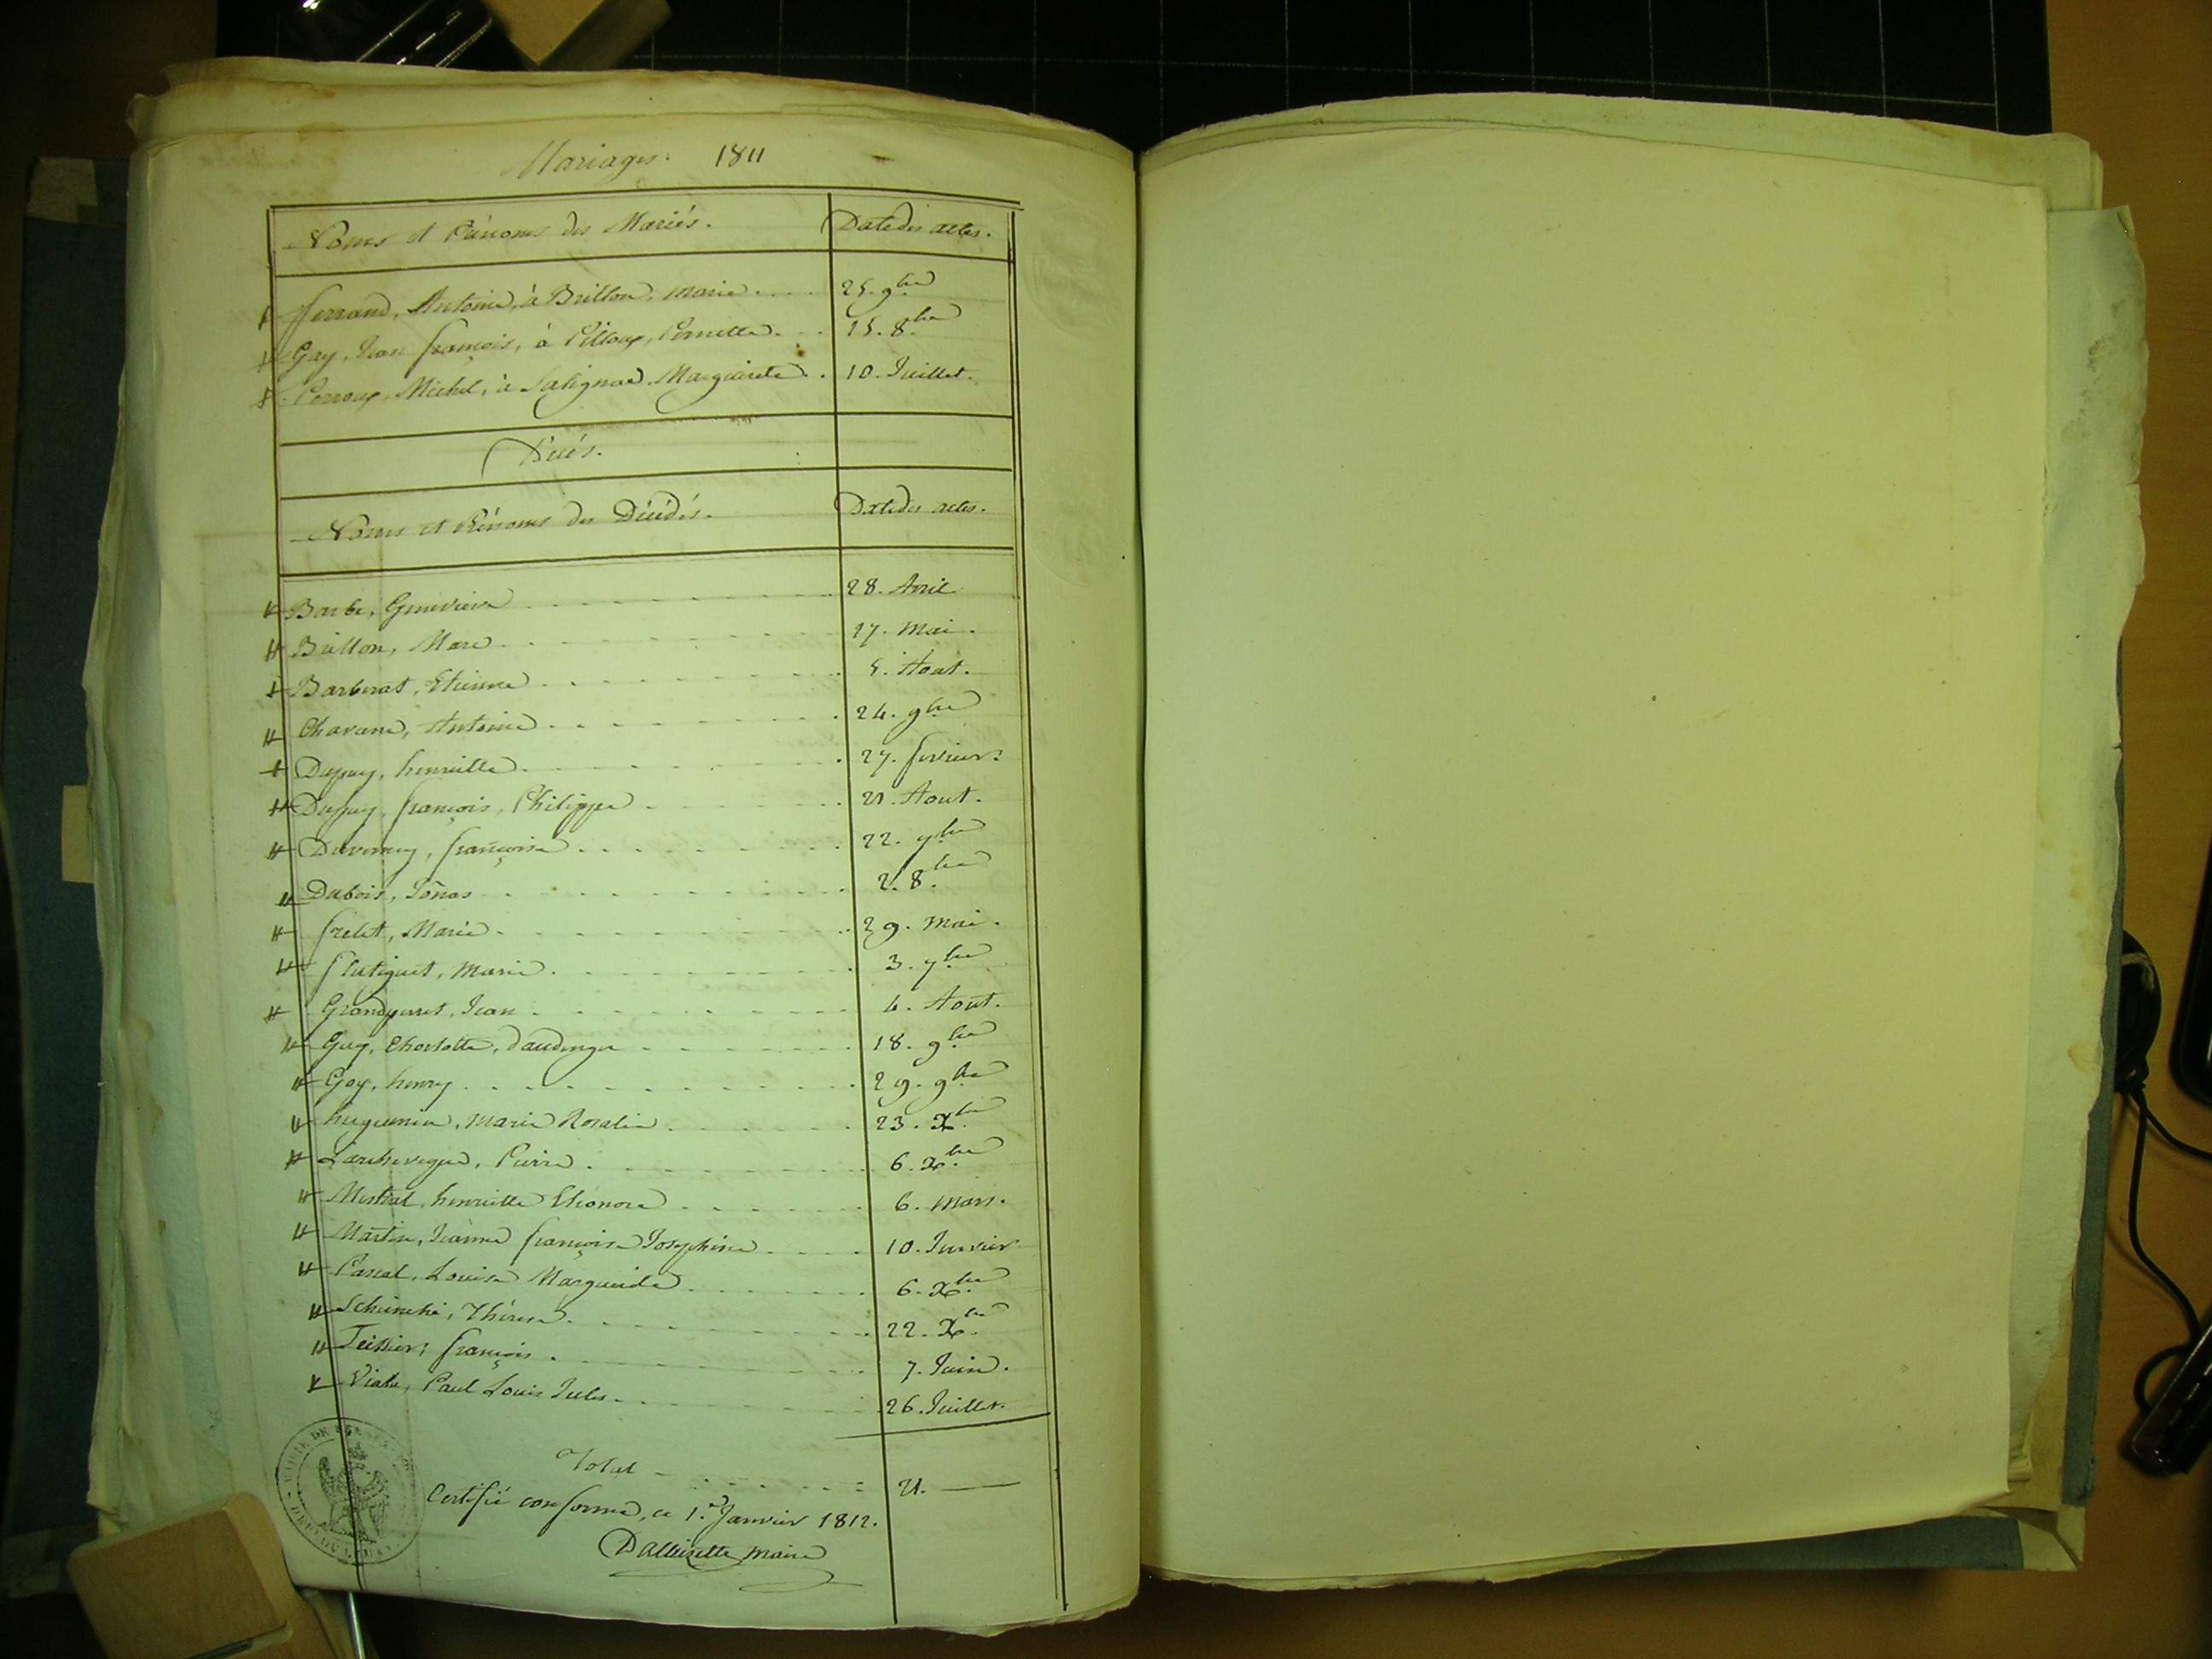 Mariages. 1811
Noms et Prénoms des Mariés. Date des actes.
ferrand, Antoine, à Brillon, Marie 25. 9bre
Gay, Jean françois, à Pilloux, Pernette 15. 8bre
Perroux, Michel, à Salignac, Marguerite 10. Juillet.
Décès.
Noms et Prénoms des Décédés. Date des actes.
Barbe, Genevieve 28. Avril
Brillon, Marc 17. Mai.
Barberat, Etienne 5. Aout.
Chavane, Antoine 24. 9bre
Dupuy, henriette 27. fevrier:
Dupuy, françois, Philippe 21. Aout.
Duverney, françoise 22. 7bre
Dubois, Jonas 2. 8bre
frelet, Marie 29. Mai.
flutiguet, Marie 3. 7bre
Grandperret, Jean 4. Aout.
Guy, Charlotte, 18. 9bre
Goy, henry 29. 9bre
huguenin, Marie Rosalie 23. Xbre
Larcheveque, Pierre 6. Xbre
Mestral, henriette Eléonore 6. Mars.
Martin, Jeanne françoise Josephine 10. Janvier
Pascal, Louise Marguerite 6. Xbre
Thérese 22. Xbre
Teissier, françois 7. Juin.
Viala, Paul Louis Jules 26. Juillet.
Total 21.
Certifié conforme, ce 1.er Janvier 1812.
Maire
MAIRIE DE